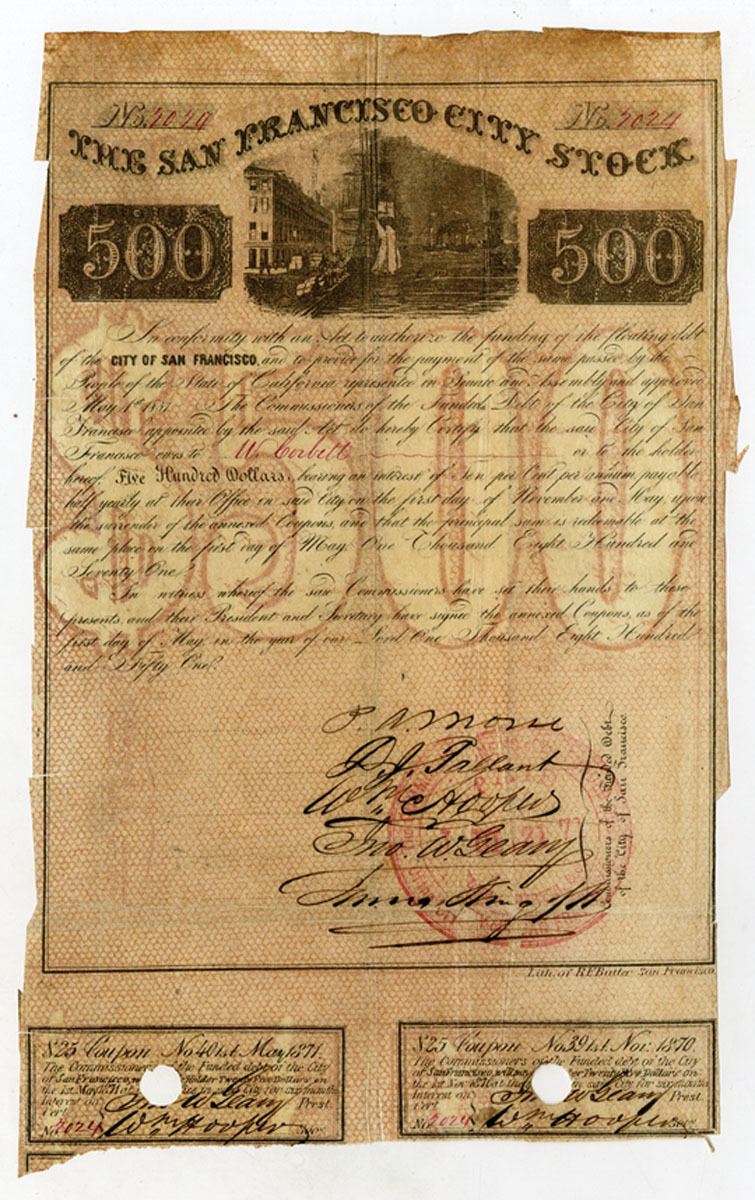 No. 2024 No. 2024
THE SAN FRANCISCO CITY STOCK
500 500
In conformity with an Act to authorize the funding of the floating debt
of the CITY OF SAN FRANCISCO, and to provide for the payment of the same passed by the
People of the State of California represented in Senate and Assembly and approved
May 1st 1851. The Commissioners of the Funded Debt of the City of San
Francisco appointed by the said Act do hereby Certify that the said City of San
Francisco owes to W. Corbett or to the holder
hereof, Five Hundred Dollars, bearing an interest of Ten per Cent per annum, payable
half yearly at their Office in said City on the first day of November and May, upon
the surrender of the annexed Coupons, and that the principal sum is redeemable at the
same place on the first day of May, One Thousand Eight Hundred and
Seventy One.
In witness whereof the said Commissioners have set their hands to these
presents, and their President and Secretary have signed the annexed Coupons, as of the
first day of May, in the year of our Lord One Thousand Eight Hundred
and Fifty One.
P. A. Morse
D. J. Tallant
Wm Hooper
Jno. W. Geary
James King of Wm
Commissioners of the Funded Debt
of the City of San Francisco
Lith. of B.F. Butler San Francisco
$25 Coupon No. 40 1st May, 1871.
The Commissioners of the Funded debt of the City
of San Francisco, Holder Twenty Five Dollars on
the 1st May in said City for six months
Interest on
Cert. Jno W Geary Prest.
No. 2024 Wm Hooper Secy.
$25 Coupon No. 39 1st Nov: 1870.
The Commissioners of the Funded debt of the City
of San Francisco, will pay Twenty Five Dollars on
the 1st Nov in said City for six months
Interest on
Cert. Jno W Geary Prest.
No. 2024 Wm Hooper Secy.